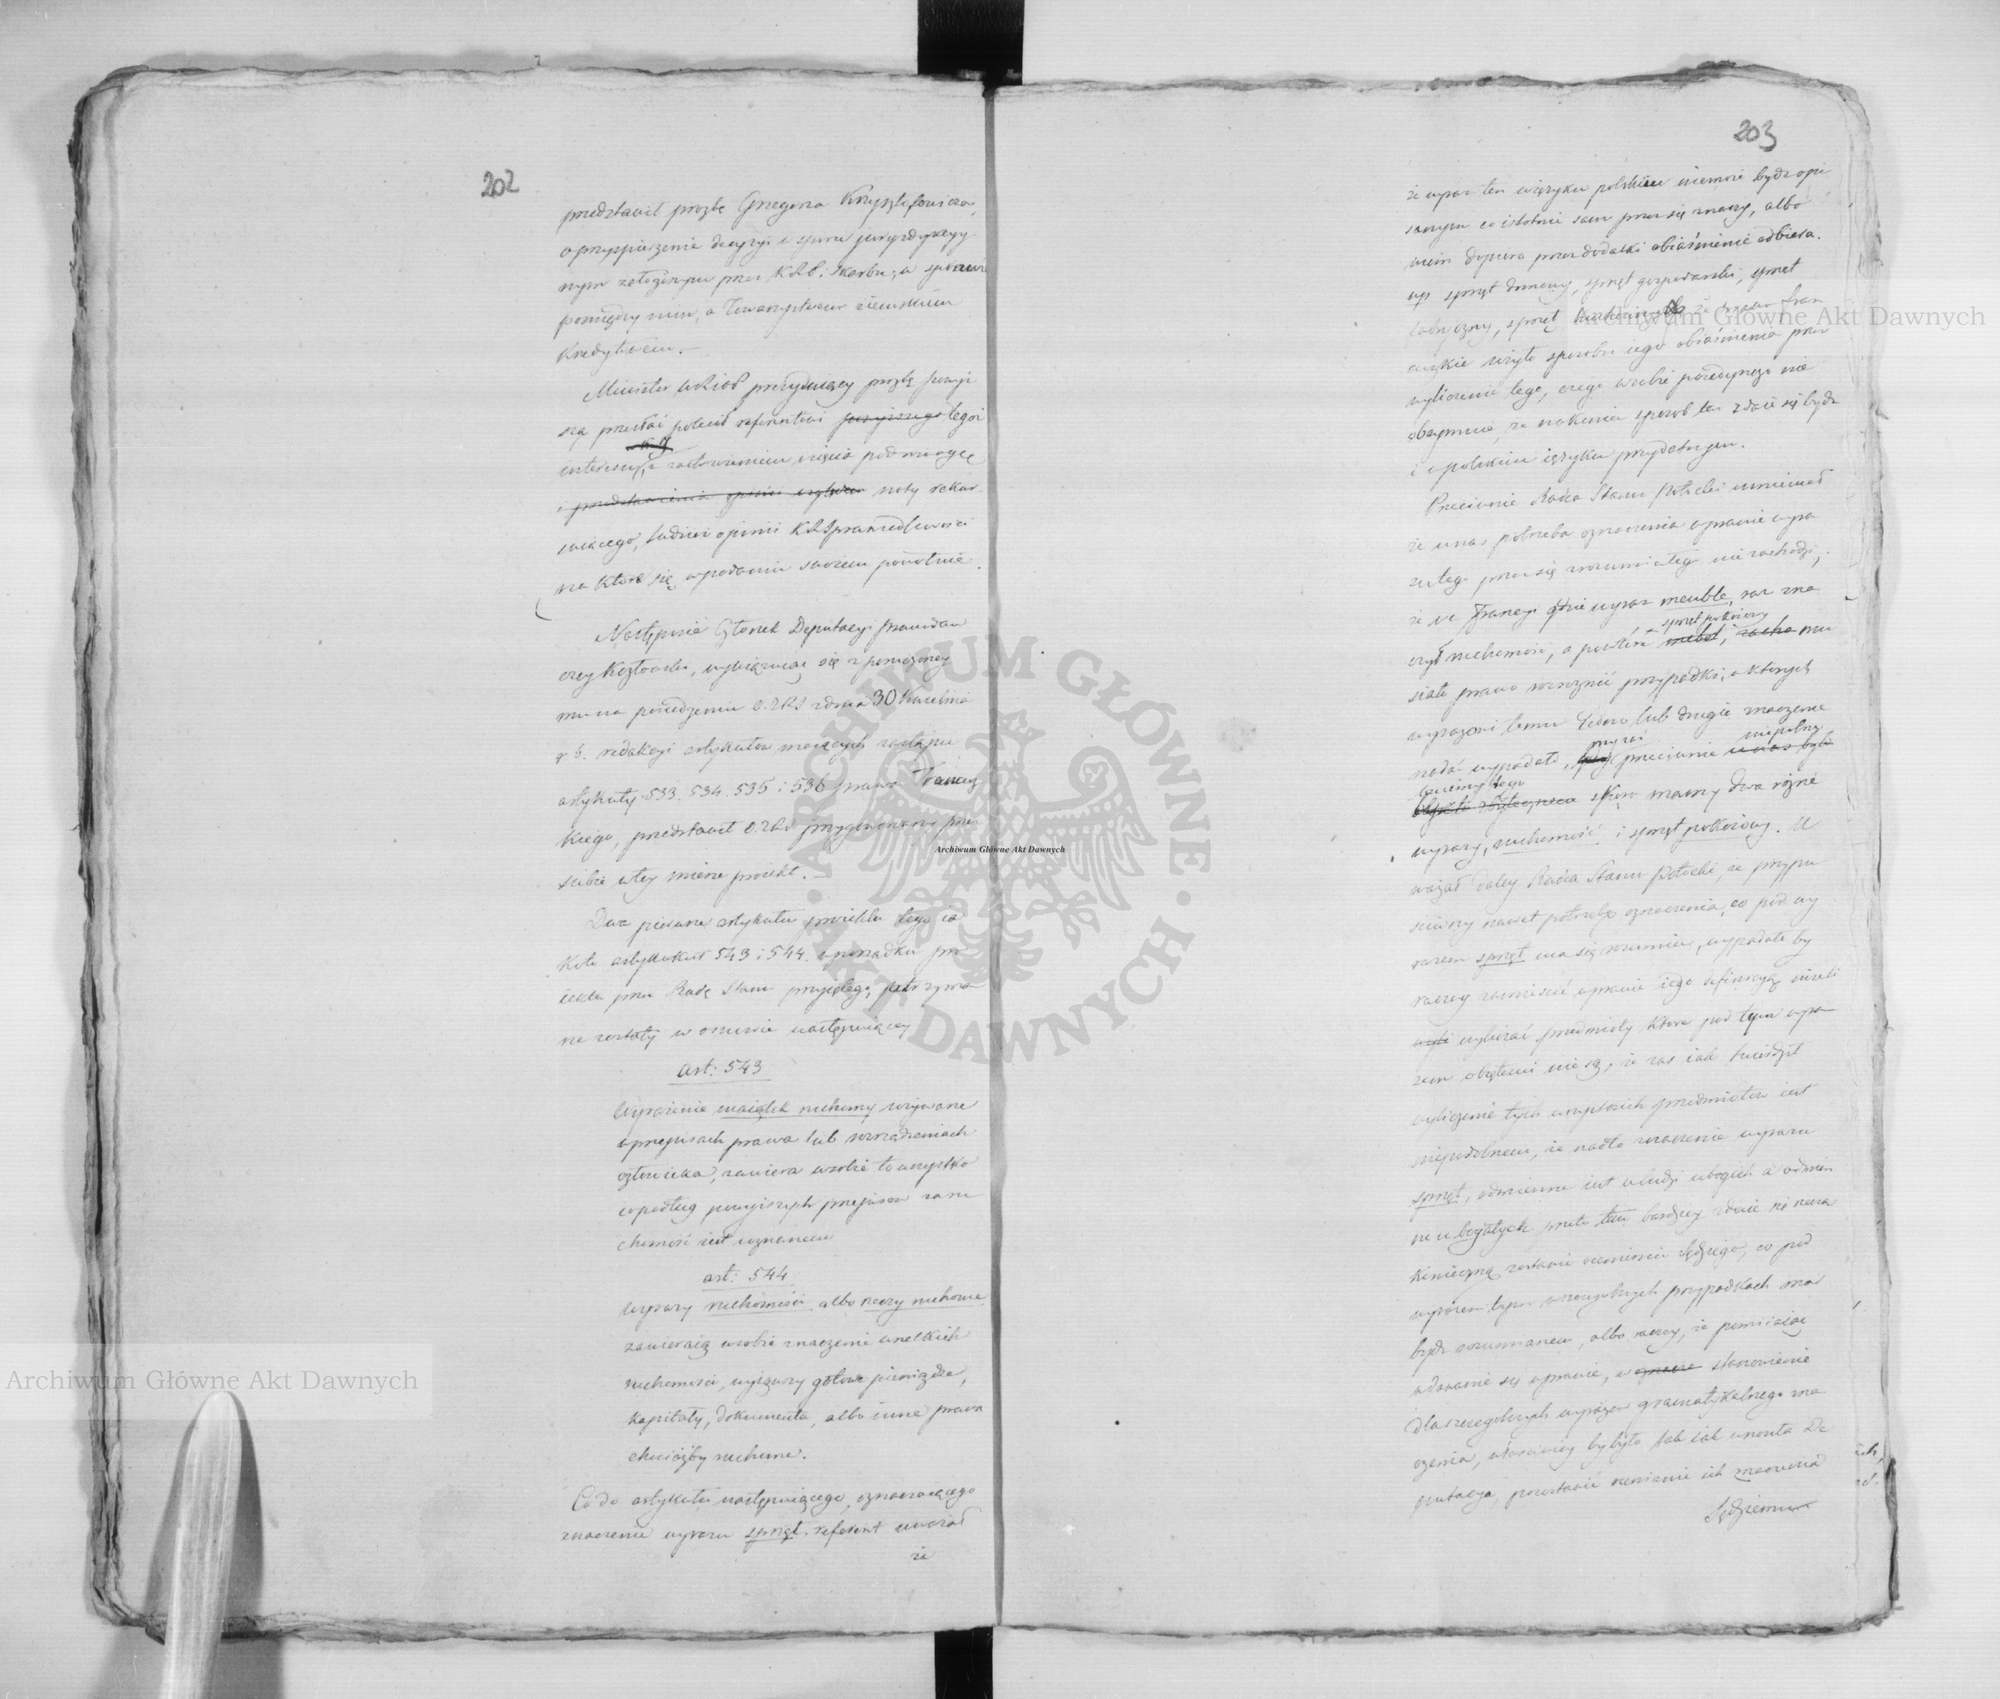 202
przedstawił prozbę Grzegorza Krzysztofowicza,
o przyspieszenie decyzyi w sporze juryzdykcyi
nym założonym przez K.R.P. Skarbu, w sprawie
pomiędzy nim, a Towarzystwem ziemskiem
kredytowem.—
Minister Sekr. prezyduiący prozbę powyż
szą przesłać polecił referentowi powyższego tegoż
interesu, z zastosowaniem wzięcia pod uwagę
i przedstawienia noty rekur
suiącego, tudzież opinii K.R. Sprawiedliwości
na które się w podaniu swoiem powołuie.
Następnie Członek Deputacyi Prawodaw
czey Kozłowski, wywiązuiąc się z poruczoney
mu na posiedzeniu z dnia 30 Kwietnia
r. b. redakcyi artykułów maiących zastąpić
artykuły 533. 534. 535 i 536 prawa Francuz
kiego, przedstawił przygotowany przez
siebie w tey mierze proiekt.—
Dwa pierwsze artykuły proiektu tego ia
ko artykuły 543 i 544. w porządku pro
iektu przez Radę Stanu przyiętego, potrzyma
ne zostały w osnowie następuiącey
art: 543
Wyrażenie maiątek ruchomy używane
w przepisach prawa lub rozrządzeniach
człowieka, zawiera w sobie to wszystko
co podług powyższych przepisów za ru
chomość iest uznanem
art: 544
Wyrazy ruchomości albo rzeczy ruchome
zawieraią w sobie znaczenie wszelkich
ruchomości, wyiąwszy gotowe pieniądze,
kapitały, dokumenta, albo inne prawa
chociażby ruchome.
Co do artykułu następuiącego, oznaczaiącego
znaczenie wyrazu sprzęt, referent uważał
że
203
że wyraz ten w ięzyku polskim niemoże bydź opi
sanym co istotnie sam przez się znaczy, albo
wiem dopiero przez dodatki obiaśnienie odbiera.
np. sprzęt domowy, sprzęt gospodarski, sprzęt
fabryczny, sprzęt kuchenny że prawo fran
cuzkie użyło sposobu iego obiaśnienia przez
wyliczenie tego, czego w sobie poiedynczo nie
obeymuie, że nakoniec sposób ten zdaie się bydź
i w polskim ięzyku przydatnym.
Przeciwnie Radca Stanu Potocki mniemał
że u nas potrzeba oznaczenia w prawie wyra
zu tego przez się zrozumiałego nie zachodzi,
że we Francyi gdzie wyraz meuble, raz zna
sprzęt pokoiowy
czył ruchomość, a powtóre mebel, mu
siało prawo rozróżnić przypadki, w których
wyrazowi temu iedno lub drugie znaczenie
nadać wypadało, przeciwnie u nas było
skoro mamy dwa różne
wyrazy, ruchomość i sprzęt pokoiowy. U
ważał daley Radca Stanu Potocki, że przypu
ściwszy nawet potrzebę oznaczenia, co pod wy
razem sprzęt ma się rozumieć, wypadało by
raczey zamieścić w prawie iego definicyą niżeli
wyliczać przedmioty które pod tym wyra
zem obiętemi nie są, że zaś iak twierdził
wyliczenie tych wszystkich przedmiotów iest
niepodobnem, że nadto znaczenie wyrazu
sprzęt, odmienne iest u ludzi ubogich a odmien
ne u bogatych, przeto tem bardziey zdaie się rzeczą
konieczną zostawić ocenieniu Sędziego, co pod
wyrazem tym w szczególnych przypadkach ma
bydź rozumianem, albo raczey, że pomiiaiąc
wdawanie się w prawie, w stanowienie
dla szczególnych wyrazów gramatykalnego zna
czenia, właściwiey by było tak iak wnosiła De
putacya, pozostawić ocenienie ich znaczenia
Sędziemu